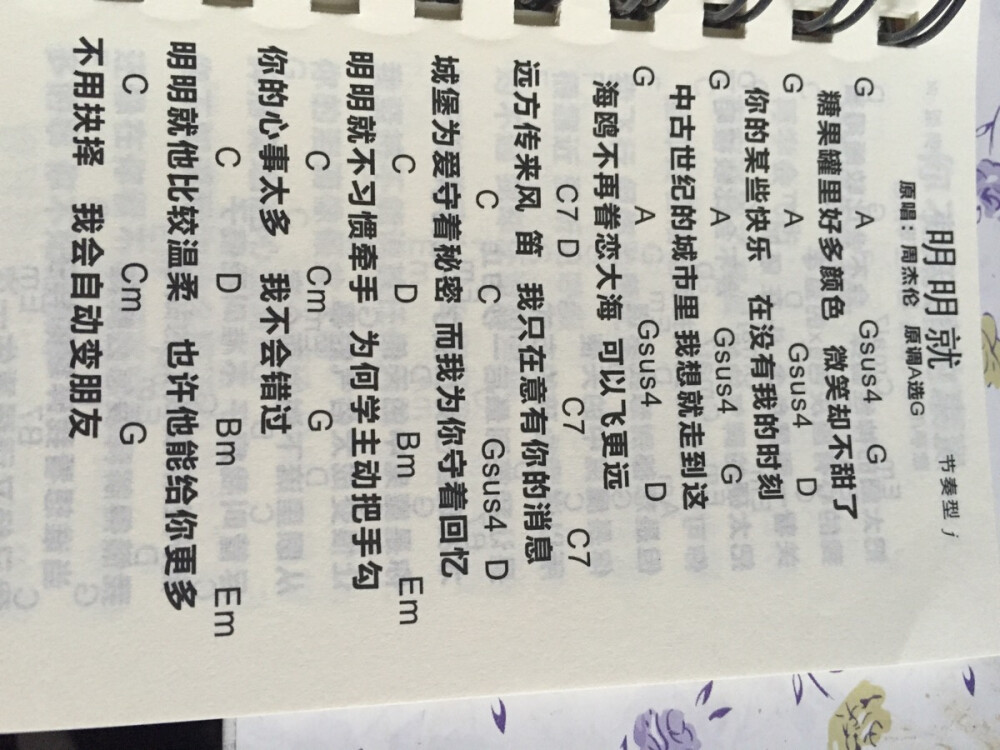 明明就 节奏型 j
原唱：周杰伦 原调A选G
G A Gsus4 G
糖果罐里好多颜色 微笑却不甜了
G A Gsus4 D
你的某些快乐 在没有我的时刻
G A Gsus4 G
中古世纪的城市里 我想就走到这
G A Gsus4 D
海鸥不再眷恋大海 可以飞更远
C7 D C7 C7
远方传来风 笛 我只在意有你的消息
C C Gsus4 D
城堡为爱守着秘密 而我为你守着回忆
C D Bm Em
明明就不习惯牵手 为何学主动把手勾
C Cm G
你的心事太多 我不会错过
C D Bm Em
明明就他比较温柔 也许他能给你更多
C Cm G
不用抉择 我会自动变朋友